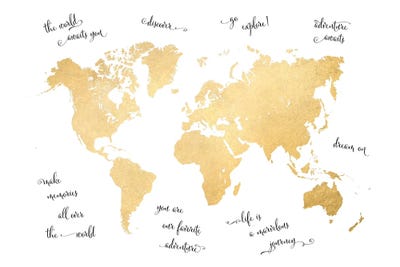 the world
awaits you
discover
go
explore!
adventure
awaits
dream on
make
memories
all over
the world
you are
our favorite
adventure
life is
a marvelous
journey